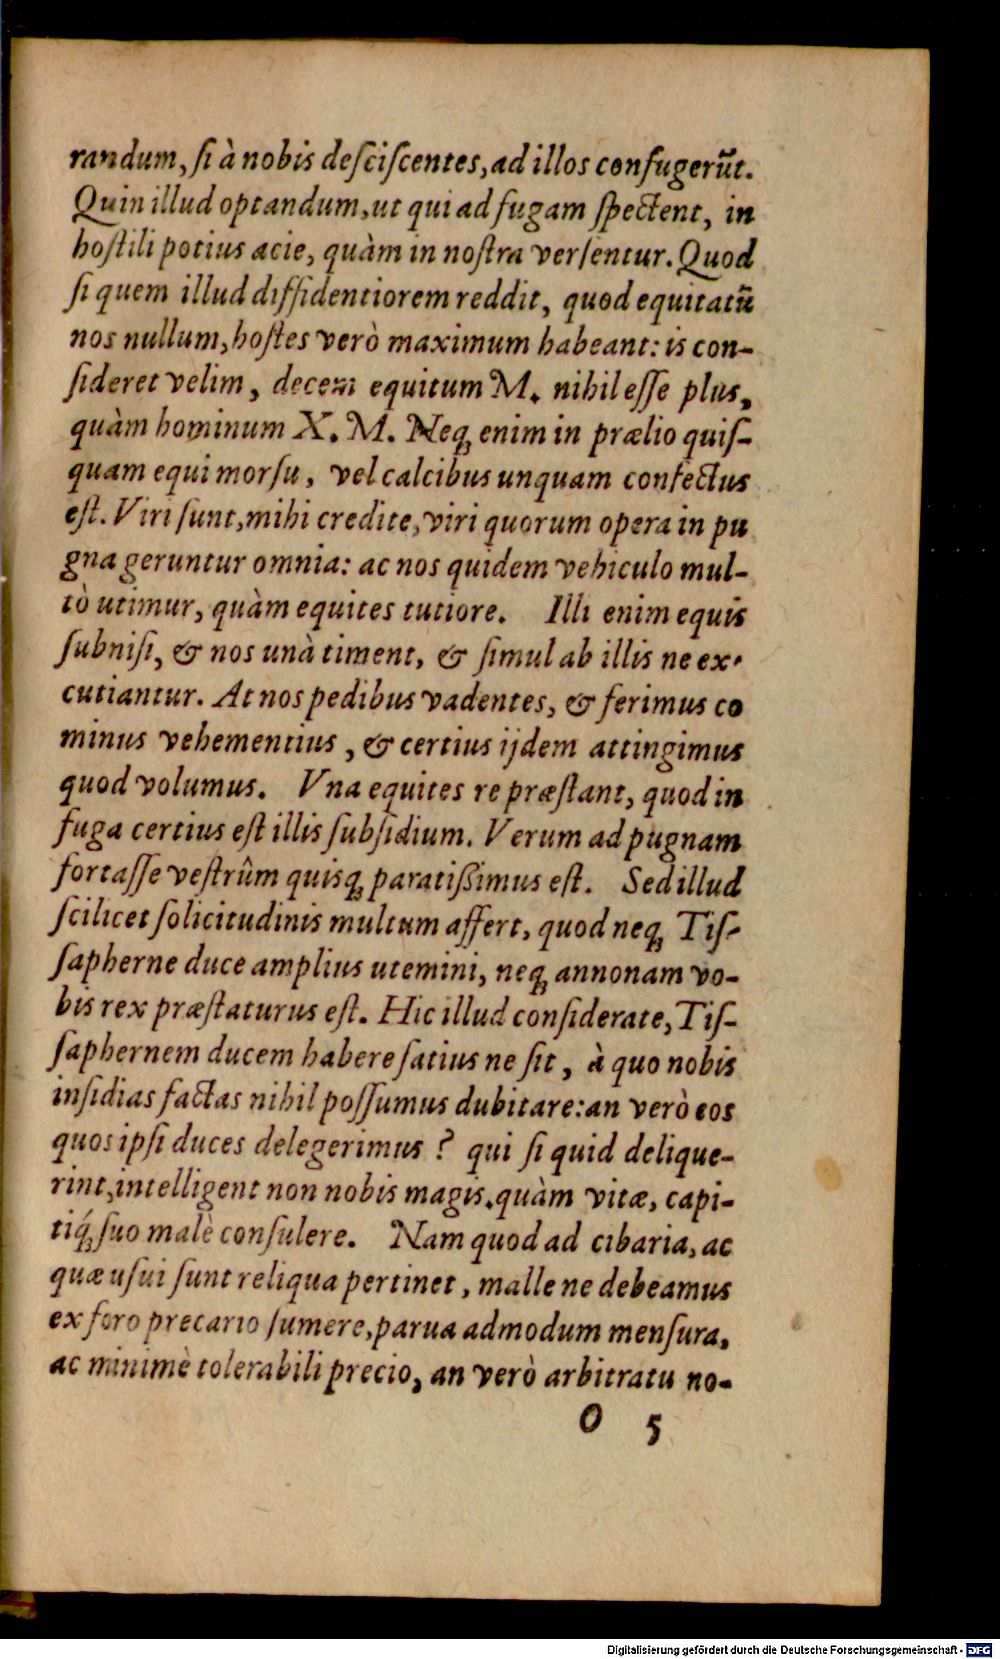 randum, ſi à nobis deſciſcentes, ad illos confugerūt.
Quin illud optandum, ut qui ad fugam ſpectent, in
hoſtili potius acie, quàm in noſtra verſentur. Quod
ſi quem illud diffidentiorem reddit, quod equitatū
nos nullum, hoſtes verò maximum habeant: is con-
ſideret velim, decem equitum M. nihil eſſe plus,
quàm hominum X. M. Neq; enim in prælio quiſ-
quam equi morſu, vel calcibus unquam confectus
eſt. Viri ſunt, mihi credite, viri quorum opera in pu
gna geruntur omnia: ac nos quidem vehiculo mul-
tò utimur, quàm equites tutiore. Illi enim equis
ſubniſi, & nos unà timent, & ſimul ab illis ne ex-
cutiantur. At nos pedibus vadentes, & ferimus co
minus vehementius, & certius ijdem attingimus
quod volumus. Vna equites re præſtant, quod in
fuga certius eſt illis ſubſidium. Verum ad pugnam
fortaſſe veſtrûm quisq; paratißimus eſt. Sed illud
ſcilicet ſolicitudinis multum affert, quod neq; Tiſ-
ſapherne duce amplius utemini, neq; annonam vo-
bis rex præſtaturus eſt. Hic illud conſiderate, Tiſ-
ſaphernem ducem habere ſatius ne ſit, à quo nobis
inſidias factas nihil poſſumus dubitare: an verò eos
quos ipſi duces delegerimus? qui ſi quid delique-
rint, intelligent non nobis magis, quàm vitæ, capi-
tiq́; ſuo malè conſulere. Nam quod ad cibaria, ac
quæ uſui ſunt reliqua pertinet, malle ne debeamus
ex foro precario ſumere, parua admodum menſura,
ac minimè tolerabili precio, an verò arbitratu no-
O 5
Digitalisierung gefördert durch die Deutsche Forschungsgemeinschaft - DFG